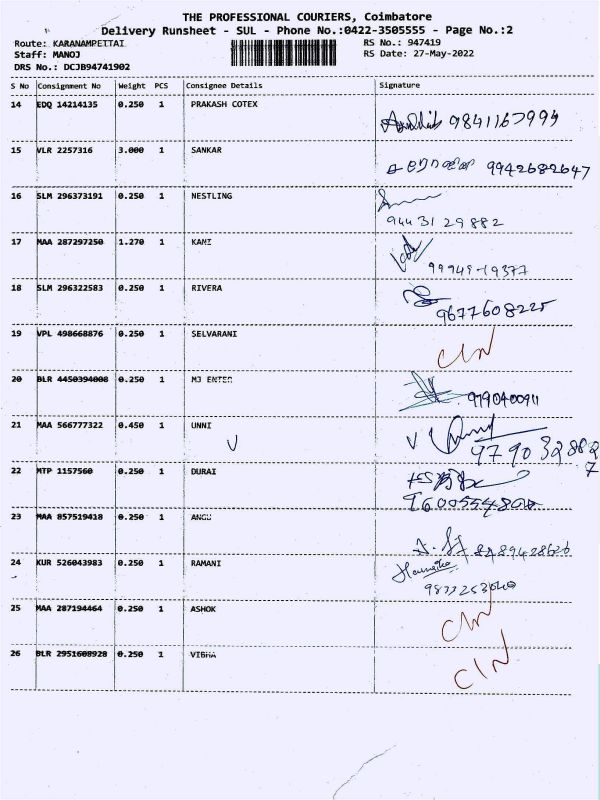 THE PROFESSIONAL COURIERS, Coimbatore
Delivery Runsheet - SUL - Phone No.:0422-3505555 - Page No.:2
Route: KARANAMPETTAI RS No.: 947419
Staff: MANOJ RS Date: 27-May-2022
DRS No.: DCJB94741902
S No Consignment No Weight PCS Consignee Details Signature
14 EDQ 14214135 0.250 1 PRAKASH COTEX
9841167994
15 VLR 2257316 3.000 1 SANKAR
9942682647
16 SLM 296373191 0.250 1 NESTLING
9443129882
17 MAA 287297250 1.270 1 KANI
99949-19377
18 SLM 296322583 0.250 1 RIVERA
9677608225
19 VPL 498668876 0.250 1 SELVARANI
CIN
20 BLR 4450394008 0.250 1 MJ ENTER
9790400911
21 MAA 566777322 0.450 1 UNNI
9790328827
22 MTP 1157560 0.250 1 DURAI
23 MAA 857519418 0.250 1 ANGU
24 KUR 526043983 0.250 1 RAMANI
25 MAA 287194464 0.250 1 ASHOK
CIN
26 BLR 2951608928 0.250 1 VIBHA
CIN